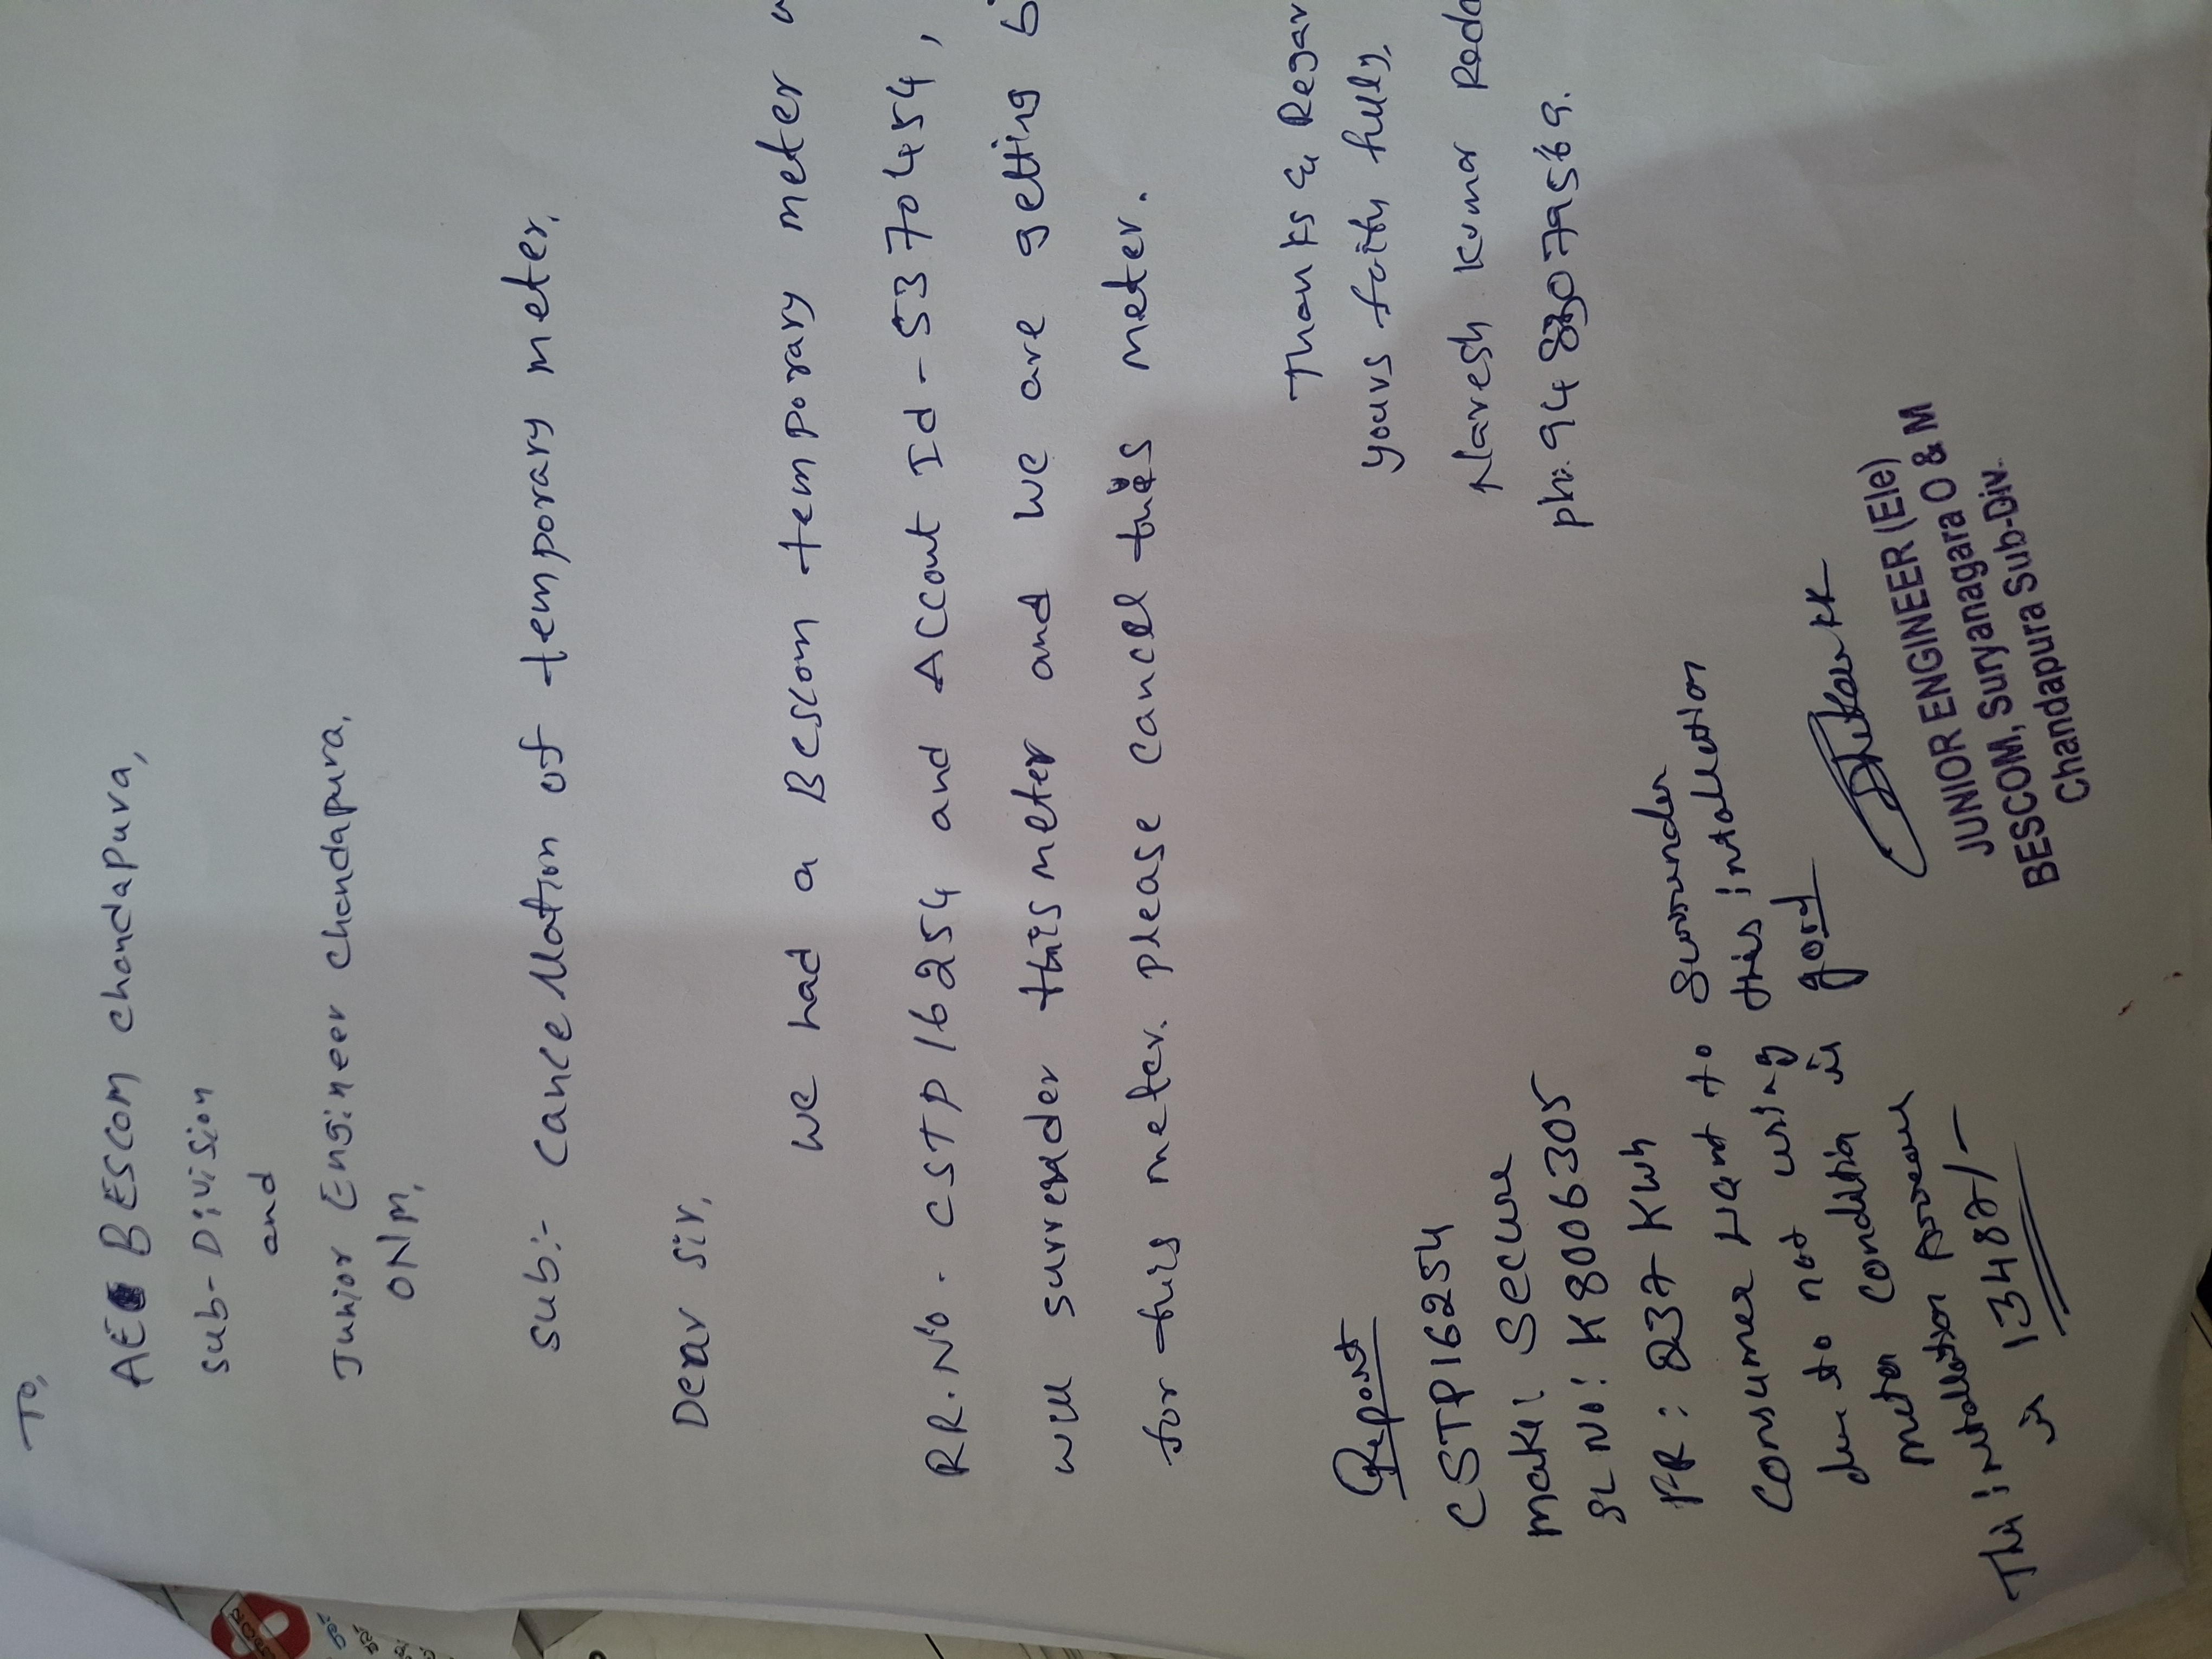 To,
AE BESCOM chandapura,
sub-Division
and
Junior Engineer chandapura,
ONM,
sub:- cancellation of temporary meter,
Dear sir,
we had a BESCOM temporary meter
RR.No. CSTP16254 and Account Id - 5370454,
will surrender this meter and we are getting
for this meter. please cancel this meter.
Thanks & Regar
yours faith fully,
Naresh Kumar Redd
ph: 9480079569.
Report
CSTP16254
make: Secure
SL No: K8006305
FR: 237 KWh
Consumer want to Surrunder
due to not using this installetion
meter condition is good
This installation Arrears
is 13482/-
Shekar KK
JUNIOR ENGINEER (Ele)
BESCOM, Suryanagara O & M
Chandapura Sub-Div.